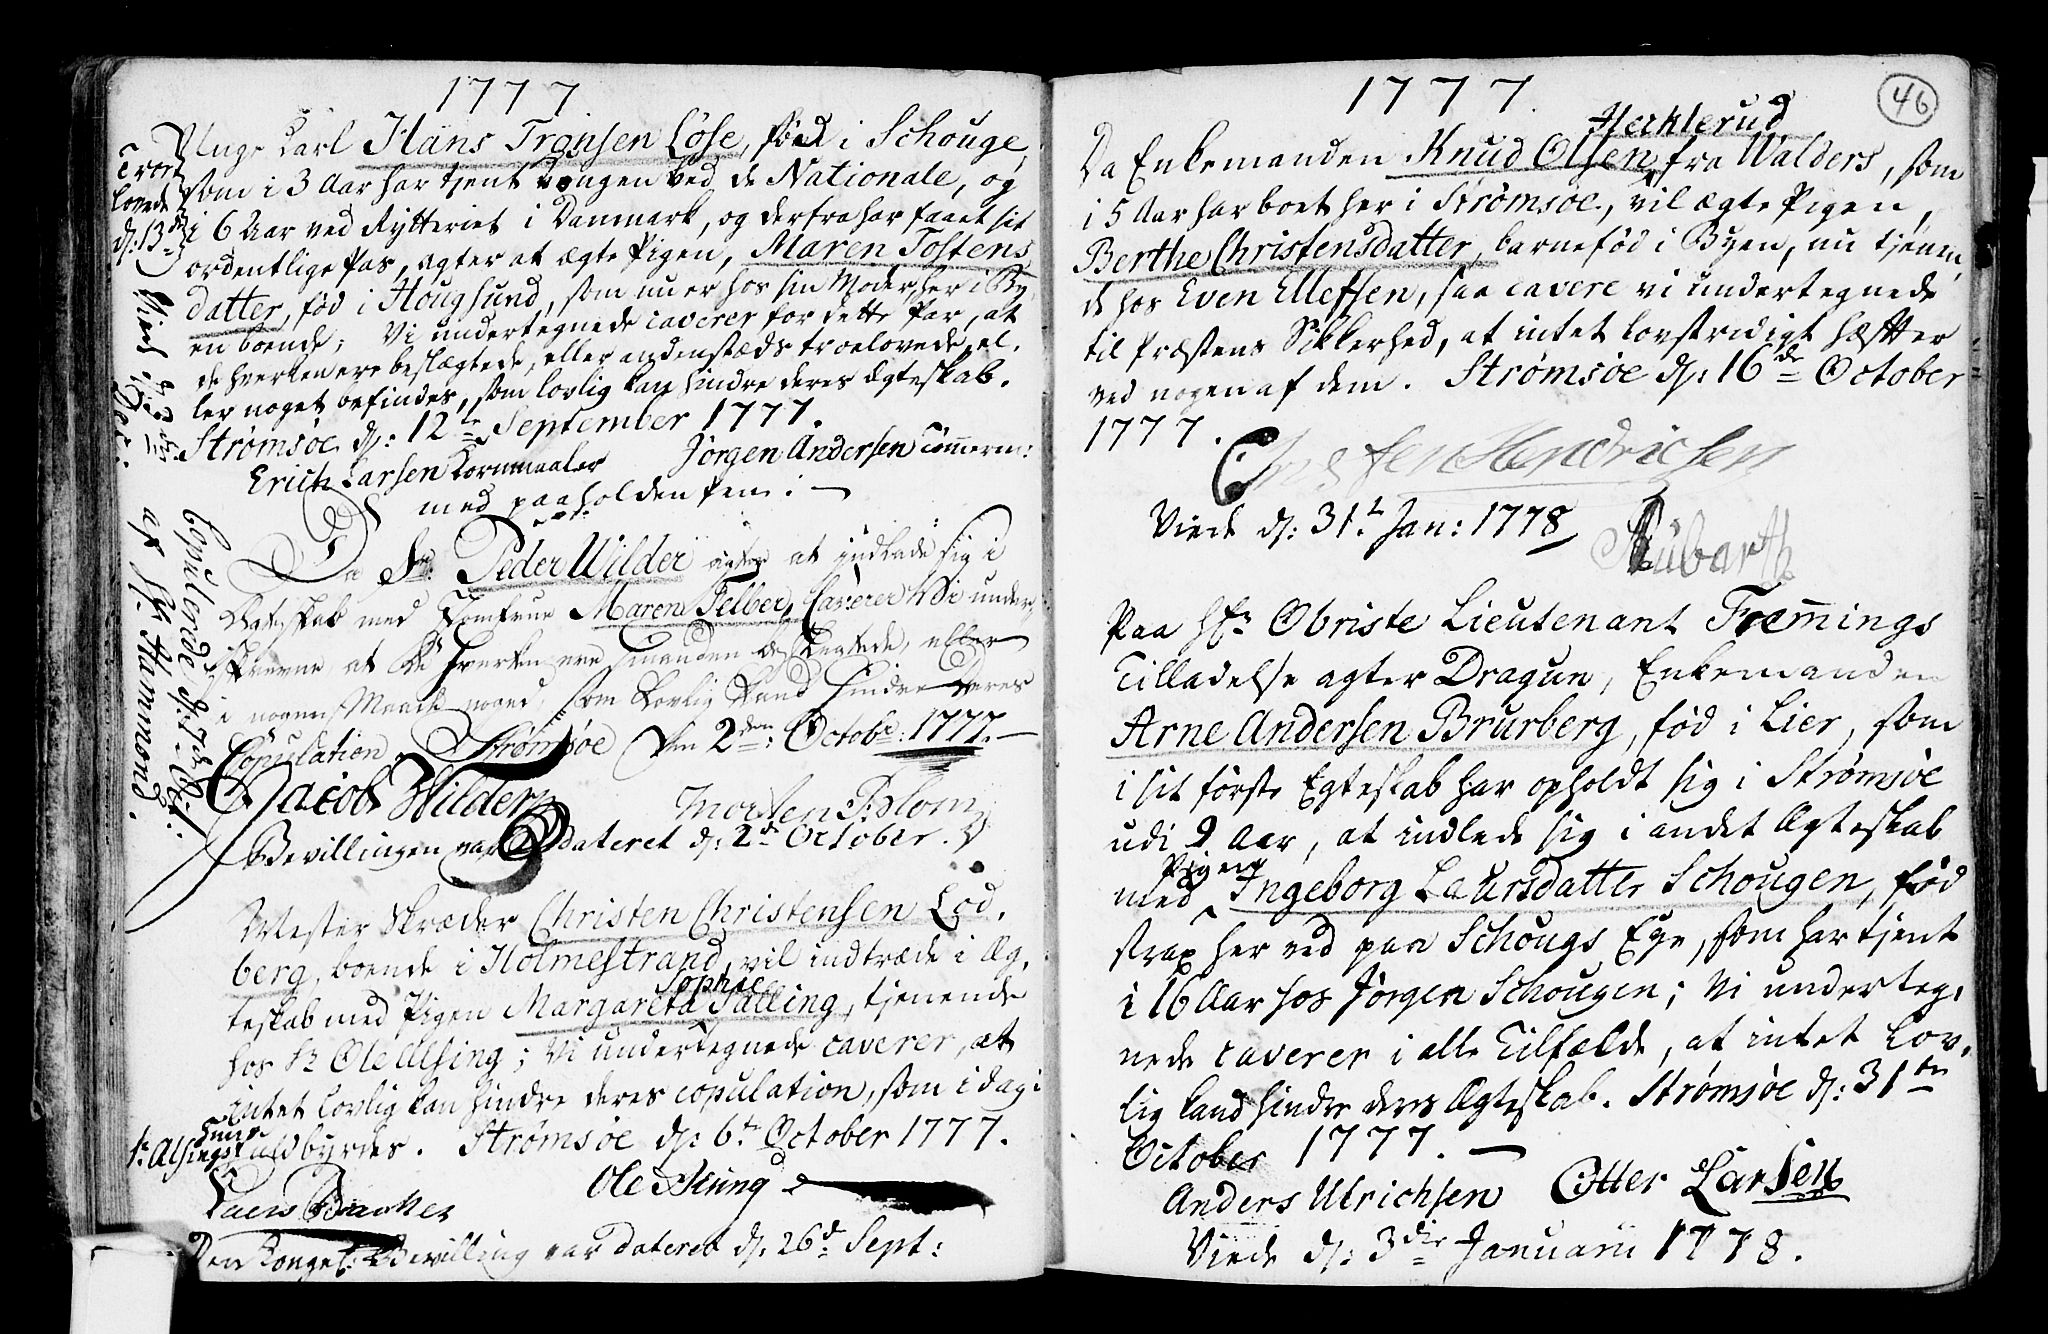 1777
Unge Karl Hans Tronsen Løse, fød i Schouge,
som i 3 Aar har tjent Kongen ved de Nationale, og
i 6 Aar ved Rytteriet i Danmark, og derfra har faaet sit
ordentlige Pas, agter at ægte Pigen, Maren Tostens
datter, fød i Hougsund, som nu er hos sin Moder her i By,
en boende; Vi undertegnede caverer for dette Par, at
de hverken ere beslægtede, eller andenstæds troelovede, el,
ler noget befindes, som lovlig kan hindre deres Ægteskab.
Strømsøe d: 12te September 1777.
Erich Larsen Kornmaaler Jørgen Andersen Tömmerm:
med paaholden Pen: —
Troe
lovede
d: 13de
Viede d: 3die
Dec:
Da Sr: Peder Wilder agter at indlade sig i
Ægteskab med Jomfrue Maren Felber, Caverer Vi under,
skrevne at De hverken ere hinanden beslegtede, eller
i nogen Maade noged, som Lovlig Kand hindre Deres
Copulation. Strømsøe den 2den: Octobr: 1777. —
Jacob Wilder Morten Blom
Bevillingen var dateret d: 2den October.
Copulerede d: 7de Oct:
af Hr Hammond.
Mester Skræder Christen Christensen Lød,
berg, boende i Holmestrand, vil indtræde i Æg,
teskab med Pigen Margareta Sophae Salling, tjenende
hos Sr Ole Alsing; Vi undertegnede caverer, at
intet lovlig kan hindre deres copulation, som i dag i
Sr: Alsings Huus fuldbyrdes. Strømsøe d: 6te October 1777.
Ole Alsing
Den Kongel: Bevilling var dateret d: 26de Sept:
1777.
46
Da Enkemanden Knud Olsen Herklerud fra Walders, som
i 5 Aar har boet her i Strømsøe, vil ægte Pigen,
Berthe Christensdatter, barnefød i Byen, nu tjenen,
de hos Even Ellefsen, saa cavere vi undertegnede
til Præstens Sikkerhed, at intet lovstridigt hæfter
ved nogen af dem. Strømsøe d: 16de October
1777.
Christen Hendrichsen
Viede d: 31te Jan: 1778
Rübarth
Paa Hr: Obriste Lieutenant Fremings
Tilladelse agter Dragun, Enkemanden
Arne Andersen Brurberg, fød i Lier, som
i sit første Egteskab har opholdt sig i Strømsøe
udi 9 Aar, at indlede sig i andet Ægteskab
med Pigen Ingeborg Laursdatter Schougen, fød
strax her ved paa Schougs Eye, som har tjent
i 16 Aar hos Jørgen Schougen; Vi underteg,
nede caverer i alle Tilfælde, at intet lov,
lig kand hindre deres Ægteskab. Strømsøe d: 31te
October 1777. —
Anders Ulrichsen Otter Larsen
Viede d: 3die Januarii 1778.